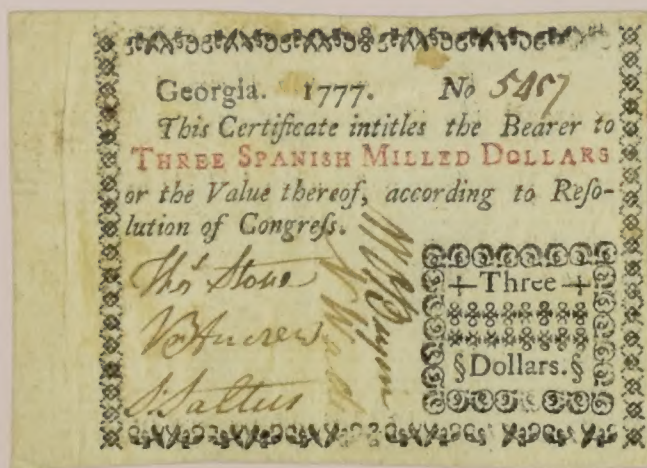 Georgia. 1777. No 5457
This Certificate intitles the Bearer to
THREE SPANISH MILLED DOLLARS
or the Value thereof, according to Reſo-
lution of Congreſs.
Thos Stone
Wm Andrew
S. Saltus
+Three+
§Dollars.§